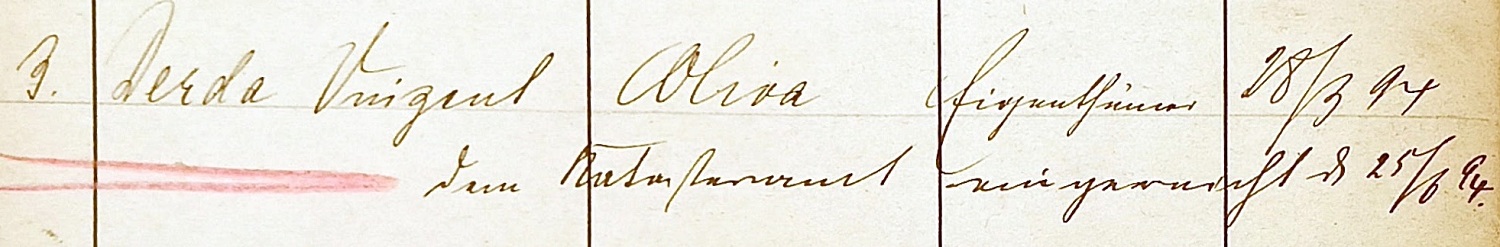 3. Derda Vinzent Oliva Eigenthümer 28/3 94
dem Katasteramt eingereicht d 25/6 94.